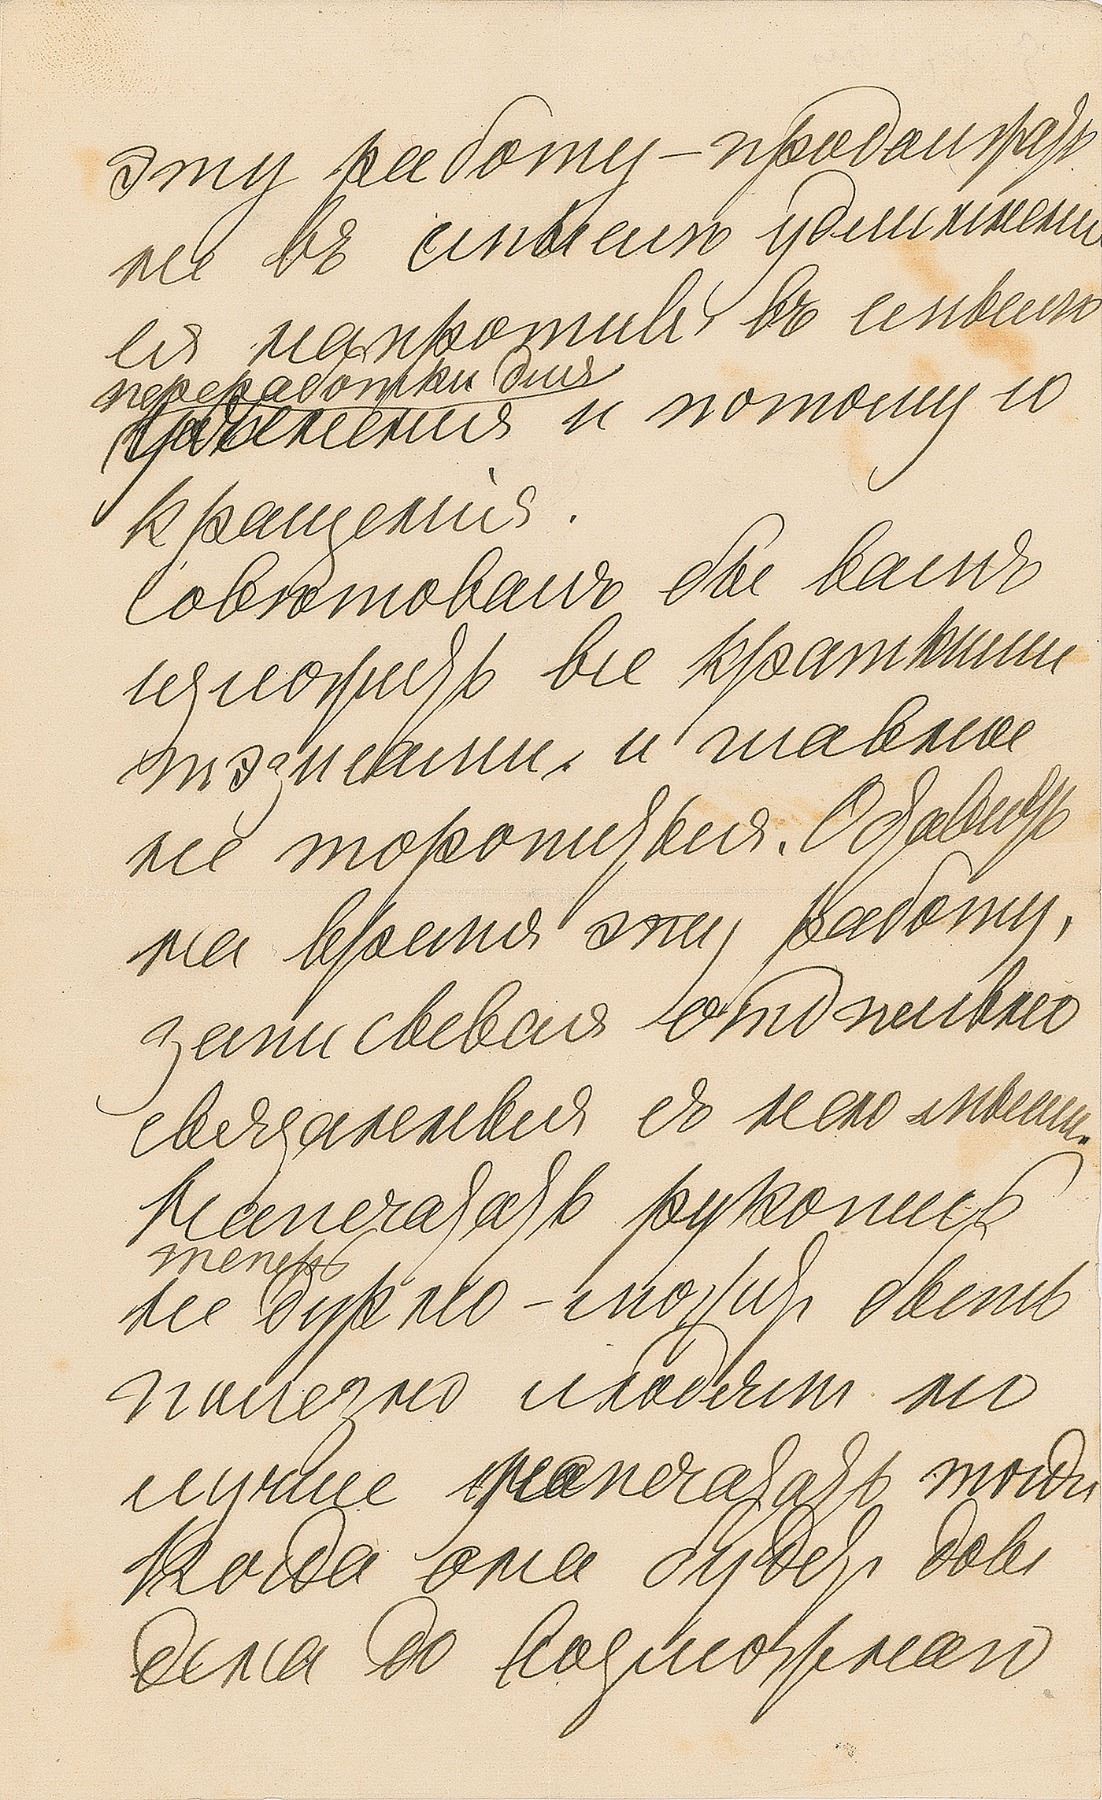 эту работу – продолжать
не въ смыслѣ удлинненія
ея напротивъ въ смыслѣ
переработки для
уясненія и потому со
кращенія.
Совѣтовалъ бы вамъ
изложить все краткими
тэзисами, и главное
не торопиться. Оставить
на время эту работу,
записывая отдѣльно
связанныя съ нею мысли.
Напечатать рукопись
теперь
не дурно – можетъ быть
полезно людямъ но
лучше напечатать тогда
когда она будетъ дове
дена до возможнаго